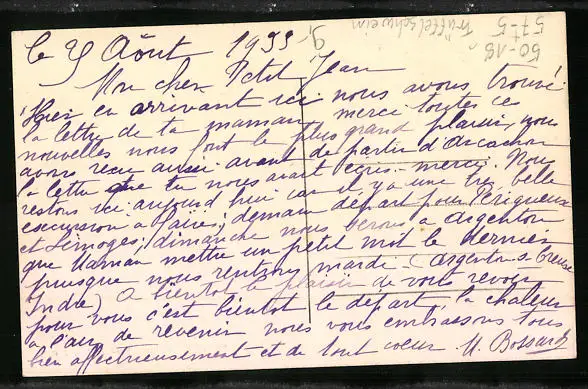 le 9 Août 1933
Mon cher Petit Jean
Hier en arrivant ici nous avons trouvé
la lettre de ta maman, merci toutes ces
nouvelles nous font le plus grand plaisir, nous
avons reçu aussi avant de partir d'Arcachon
la lettre que tu nous avait écris - merci. Nous
restons ici aujourd'hui car il y a une très belle
excursion à faire; demain départ pour Périgueux
et Limoges; dimanche nous serons à Argenton
que Maman mette un petit mot le dernier
puisque nous rentrons mardi - (Argenton-s-Creuse
Indre) à bientôt le plaisir de vous revoir
pour vous c'est bientôt le départ, la chaleur
a l'air de revenir nous vous embrassons tous
bien affectueusement et de tout coeur M. Bossard
Trüffelschwein
50-18
57-5